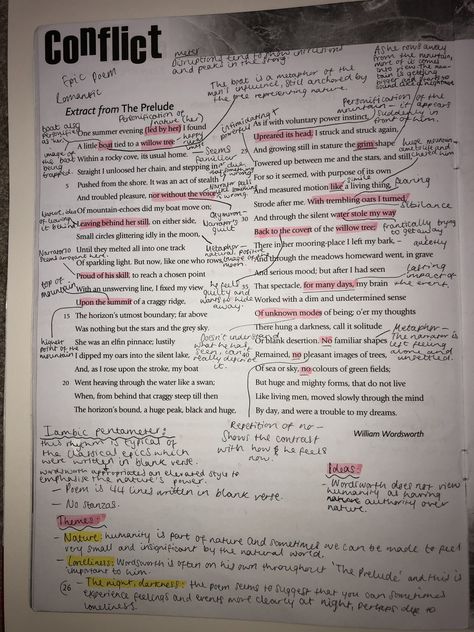 Conflict
Epic Poem
Romantic
Extract from The Prelude
One summer evening (led by her) I found
A little boat tied to a willow tree
Within a rocky cove, its usual home.
Straight I unloosed her chain, and stepping in
5 Pushed from the shore. It was an act of stealth
And troubled pleasure, nor without the voice
Of mountain-echoes did my boat move on;
Leaving behind her still, on either side,
Small circles glittering idly in the moon,
Until they melted all into one track
Of sparkling light. But now, like one who rows,
Proud of his skill, to reach a chosen point
With an unswerving line, I fixed my view
Upon the summit of a craggy ridge,
15 The horizon's utmost boundary; far above
Was nothing but the stars and the grey sky.
She was an elfin pinnace; lustily
I dipped my oars into the silent lake,
And, as I rose upon the stroke, my boat
20 Went heaving through the water like a swan;
When, from behind that craggy steep till then
The horizon's bound, a huge peak, black and huge,
As if with voluntary power instinct,
Upreared its head. I struck and struck again,
25 And growing still in stature the grim shape
Towered up between me and the stars, and still,
For so it seemed, with purpose of its own
And measured motion like a living thing,
Strode after me. With trembling oars I turned,
30 And through the silent water stole my way
Back to the covert of the willow tree;
There in her mooring-place I left my bark, -
And through the meadows homeward went, in grave
And serious mood; but after I had seen
35 That spectacle, for many days, my brain
Worked with a dim and undetermined sense
Of unknown modes of being; o'er my thoughts
There hung a darkness, call it solitude
Or blank desertion. No familiar shapes
40 Remained, no pleasant images of trees,
Of sea or sky, no colours of green fields;
But huge and mighty forms, that do not live
Like living men, moved slowly through the mind
By day, and were a trouble to my dreams.
William Wordsworth
The boat is a metaphor of the
men's influence, still anchored by
the tree representing nature.
As he rows away
from the mountain,
more of it comes
into view. The mountain is getting
bigger and
Personification of the
mountain - it appears
suddenly in
front of him.
simile
sibilance
frantically trying
to get away
quietly
lasting
impact of
the event.
Metaphor -
The narrator is
left feeling
alone and
unsettled.
Intimidating
powerful
Seems
familiar
Narrator's
guilt
he feels
guilty and
wants to hide
away.
Doesn't understand
what he has
seen, can't
really depict
it.
top of
mountain
highest
point of the
mountain
Repetition of no -
Shows the contrast
with how he feels
now.
Iambic pentameter:
this rhythm is typical of
the classical epics which
were written in blank verse.
Wordsworth appropriated an elevated style to
emphasise the nature's power.
- Poem is 44 lines written in blank verse.
- No stanzas.
Ideas:
- Wordsworth does not view
humanity as having
authority over
nature.
Themes:
- Nature: humanity is part of nature and sometimes we can be made to feel
very small and insignificant by the natural world.
- Loneliness: Wordsworth is often on his own throughout 'The Prelude' and this is
important to him.
26 - The night, darkness: the poem seems to suggest that you can sometimes
experience feelings and events more clearly at night, perhaps due to
loneliness.